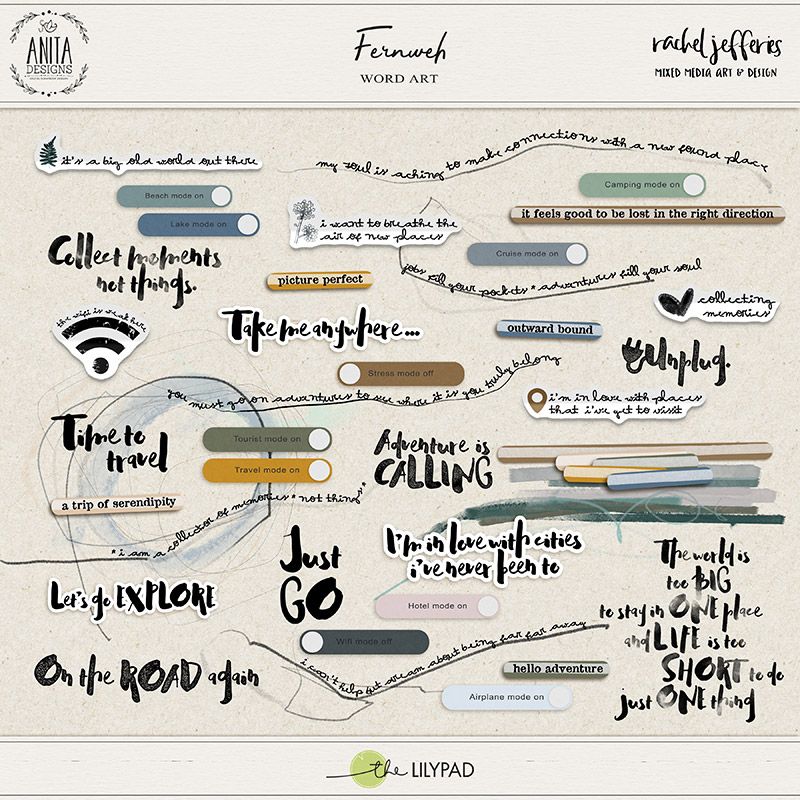 ANITA
DESIGNS
Fernweh
WORD ART
rachel jefferies
MIXED MEDIA ART & DESIGN
it's a big old world out there
my soul is aching to make connections with a new found place
Beach mode on
Camping mode on
Lake mode on
i want to breathe the
air of new places
it feels good to be lost in the right direction
Collect moments
not things.
Cruise mode on
picture perfect
jobs fill your pockets * adventures fill your soul
collecting
memories
the wifi is weak here
Take me anywhere...
outward bound
Unplug.
Stress mode off
you must go on adventures to see where it is you truly belong
i'm in love with places
that i've yet to visit
Time to
travel
Tourist mode on
Travel mode on
Adventure is
CALLING
a trip of serendipity
* i am a collector of memories * not things *
Just
GO
I'm in love with cities
i've never been to
The world is
too BIG
to stay in ONE place
and LIFE is too
SHORT to do
just ONE thing
Let's go EXPLORE
Hotel mode on
Wifi mode off
i can't help but dream about being far far away
On the ROAD again
hello adventure
Airplane mode on
the LILYPAD